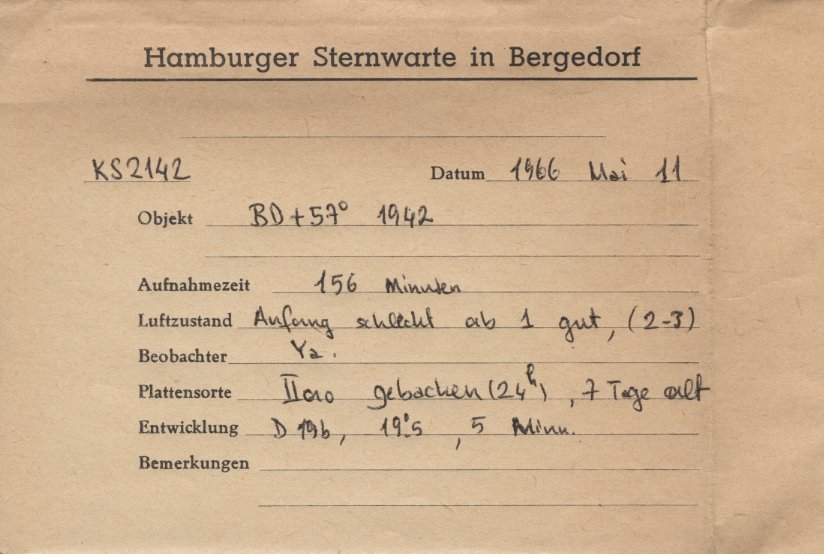 Hamburger Sternwarte in Bergedorf
KS2142 Datum 1966 Mai 11
Objekt BD+57° 1942
Aufnahmezeit 156 Minuten
Luftzustand Anfang schlecht ab 1 gut, (2-3)
Beobachter Ya.
Plattensorte IIao gebacken (24h), 7 Tage alt
Entwicklung D 19b, 19°.5, 5 Minn.
Bemerkungen